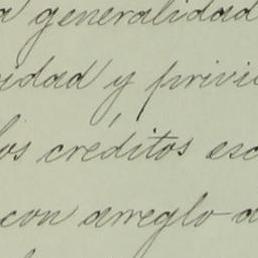 a generalidad
idad y privi
los créditos esc
con arreglo a